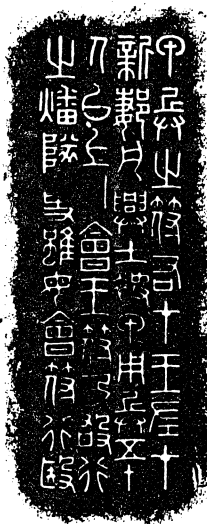 甲兵之符右才王左才
新郪凡興士被甲用兵五十
人以上必會王符乃敢行
之燔燧事雖毋會符行殹